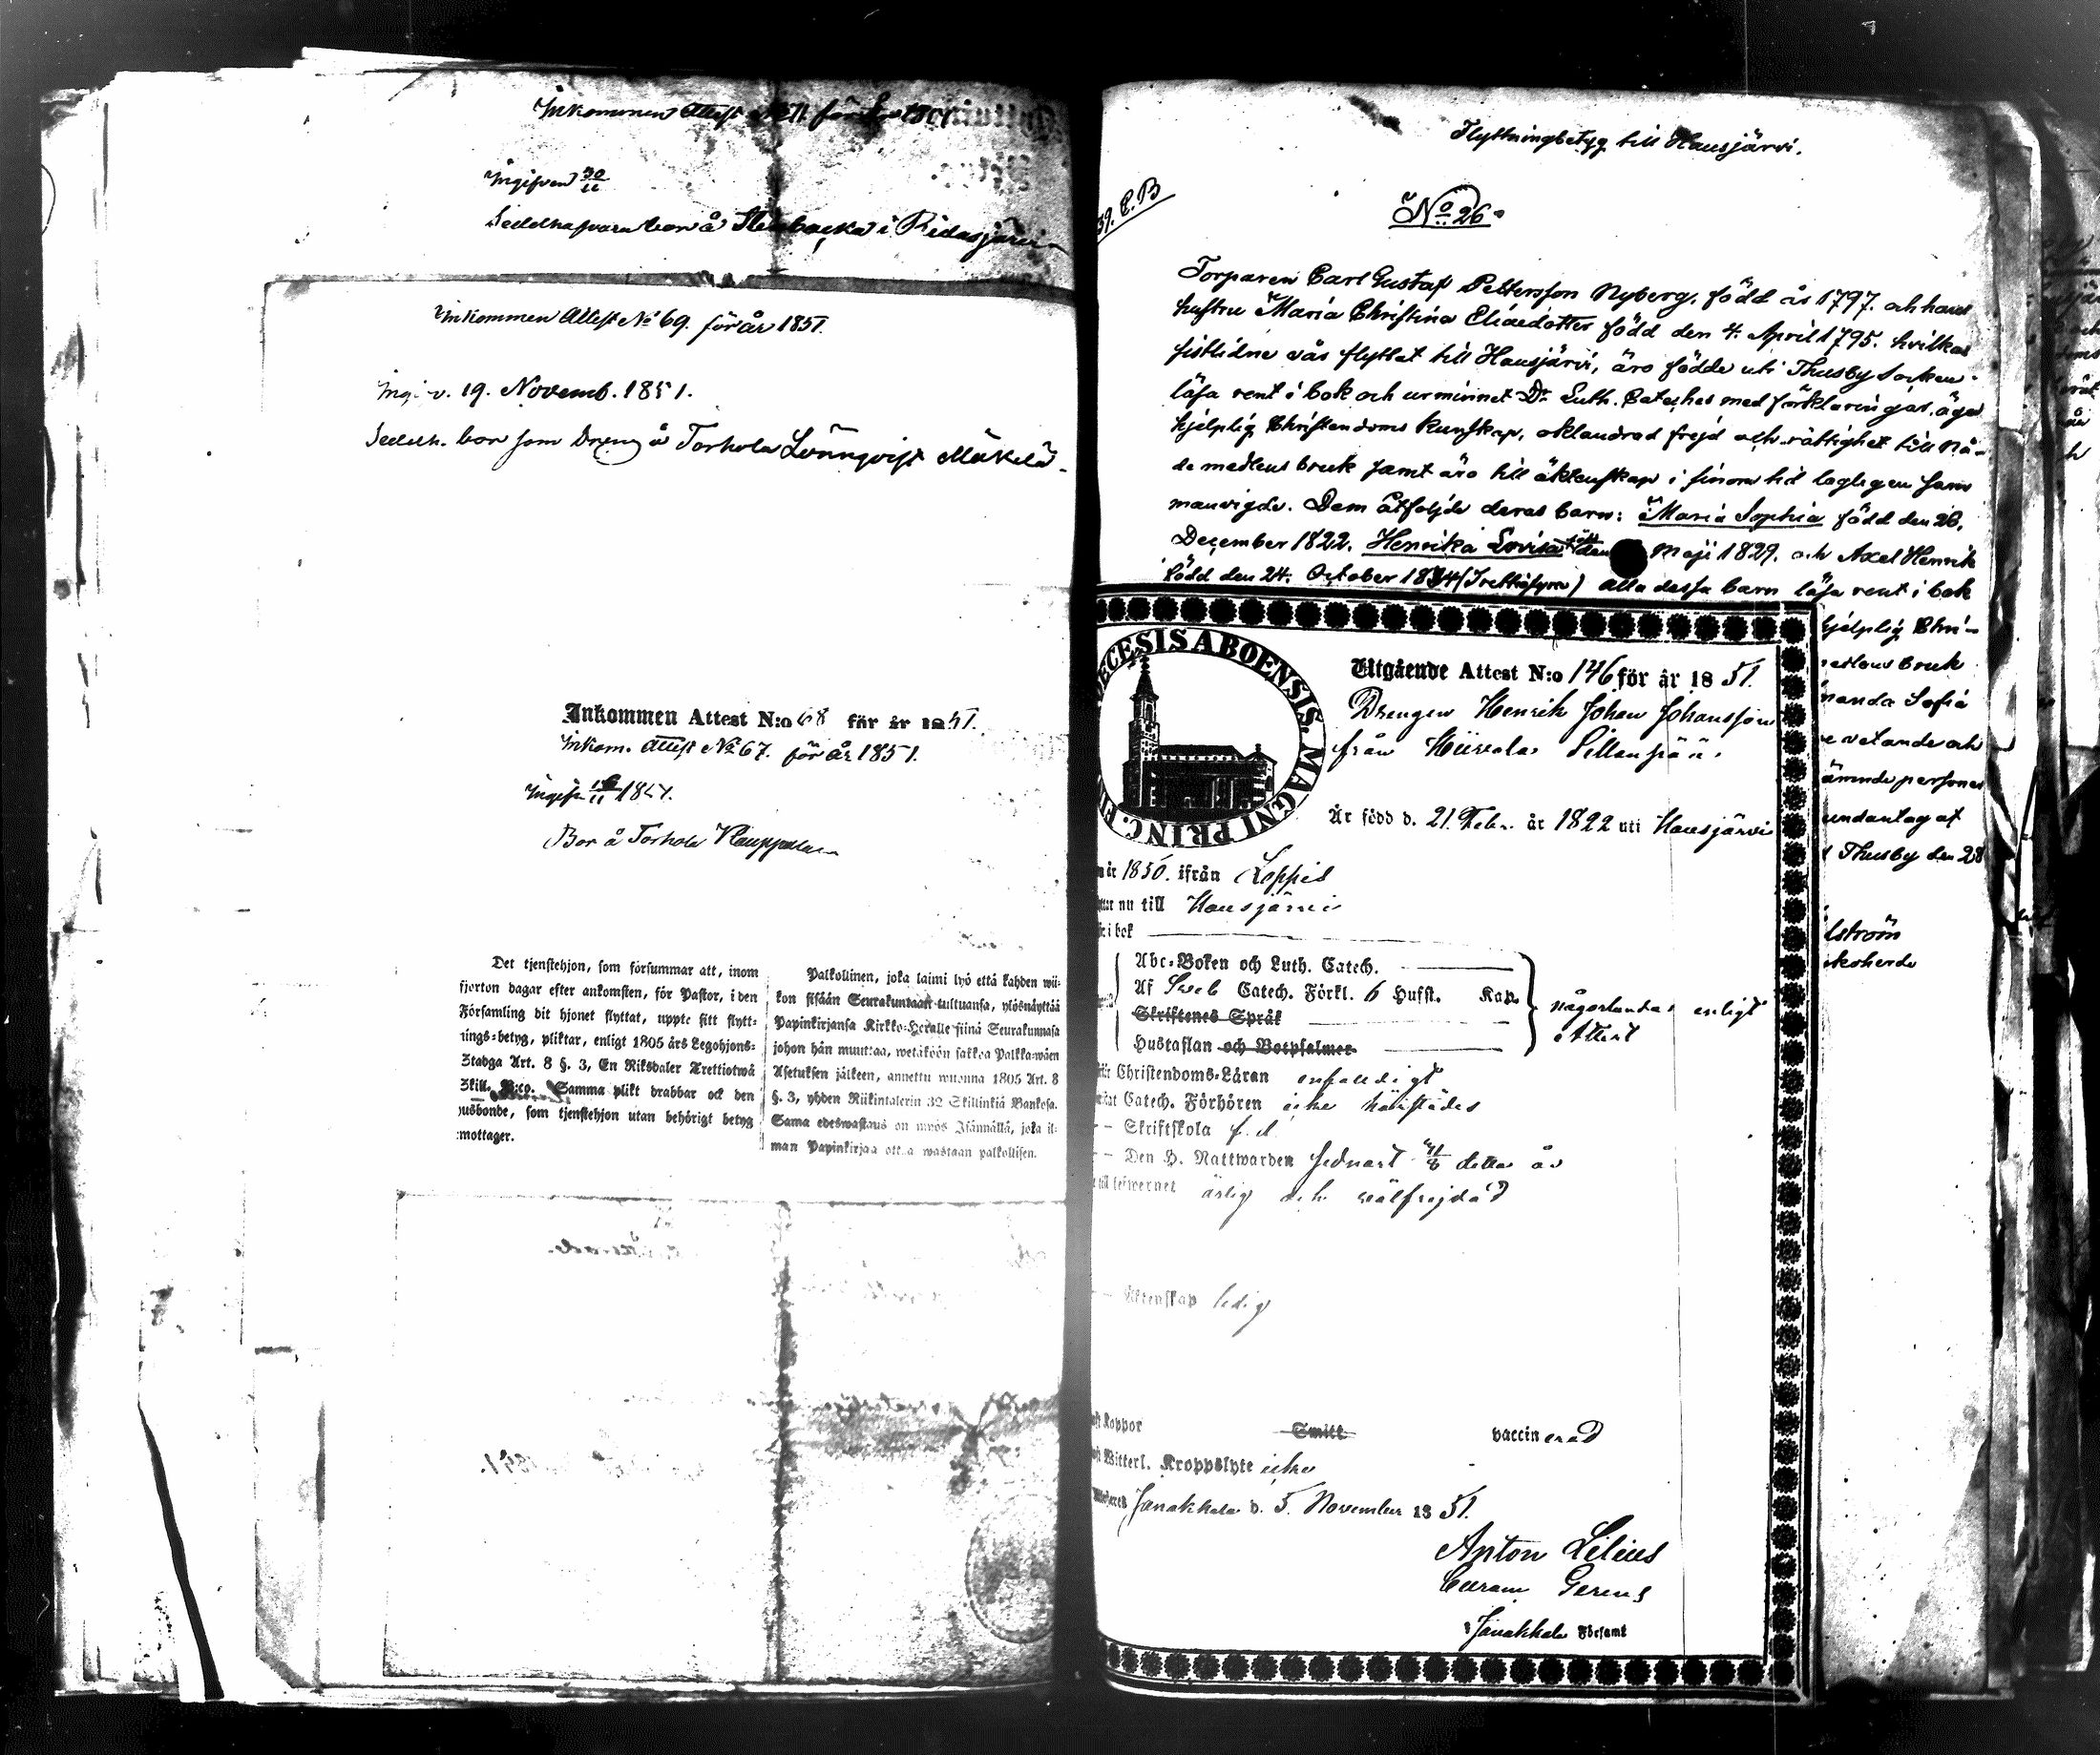 Inkommen Attest No 71. för år 1851
Ingifven 30/11
Sedelhafvaren bor å Stenbacka i Ridasjärvi
Inkommen Attest No 69. för år 1851.
Ingifv. 19. Novemb. 1851.
Sedelh. bor som Dreng å Torhola Lönnqvist Mäkelä.
Inkommen Attest N:o 68 för år 1851.
Inkom. Attest No 67. för år 1851.
Ingifv. 16/11 1851.
Bor å Torhola Kauppala
Det tjenstehjon, som försummar att, inom
fjorton dagar efter ankomsten, för Pastor, i den
Församling dit hjonet flyttat, uppte sitt flytt-
nings-betyg, pliktar, enligt 1805 års Legohjons-
Stadga Art. 8 §. 3, En Riksdaler Trettiotwå
Skill. B:co. Samma plikt drabbar ock den
husbonde, som tjenstehjon utan behörigt betyg
emottager.
Palkollinen, joka laimi lyö että kahden wii-
kon sisään Seurakuntaan tultuansa, ylösnäyttää
Papinkirjansa Kirkko-Herralle siinä Seurakunnasa
johon hän muuttaa, wetäköön sakkoa Palkkawäen
Asetuksen jälkeen, annettu wuonna 1805 Art. 8
§. 3, yhden Riikintalerin 32 Skillinkiä Bankosa.
Sama edeswastaus on myös Isännällä, joka il-
man Papinkirjaa ottaa wastaan palkollisen.
Flyttningbetyg till Hausjärvi.
39. C.B
No 26.
Torparen Carl Gustaf Pettersson Nyberg, född år 1797. och hans
hustru Maria Christina Eliaedotter född den 4. April 1795. hvilka
sistlidne vår flyttat till Hausjärvi, äro födde uti Thusby Socken.
läsa rent i bok och ur minnet Dr Luth. Cateches med förklaringar, äga
hjelplig Christendoms kunskap, oklandrad frejd och rättighet till Nå-
de medlens bruk samt äro till äktenskap i sinom tid lagligen sam
manvigde. Dem åtfölja deras barn: Maria Sophia född den 26.
December 1822. Henrika Lovisa född den Maji 1829. och Axel Henrik
född den 24. October 1834 (Trettiofyra) alla dessa barn läsa rent i bok
hjelplig Chri-
medlens bruk
manda Sofia
vetande och
personer
undantag af
Thusby den 28
lström
koherde
DIOECESIS ABOENSIS. MAGNI PRINC. FI
Utgående Attest N:o 146 för år 1851.
Drengen Henrik Johan Johansson
från Hiivola Sillanpää.
Är född d. 21. Febr. år 1822 uti Hausjärvi
år 1850. ifrån Loppis
nu till Hausjärvi
i bok
Abc-Boken och Luth. Catech.
Af Sveb Catech. Förkl. 6 Hufst. Kap.
Skriftenes Språk
Hustaflan och Botpsalmer
någorlunda enligt
Attest
Christendoms-Läran enfaldigt
Catech. Förhören icke härstädes
Skriftskola f. d.
Den H. Nattwarden sednast detta år
till lefwernet ärlig och wälfrejdad
Äktenskap ledig
Koppor Smitt vaccinerad
Witterl. Kroppslyte icke
Janakkala d. 5. November 1851.
Anton Lilius
Curam Gerens
i Janakkala Församl